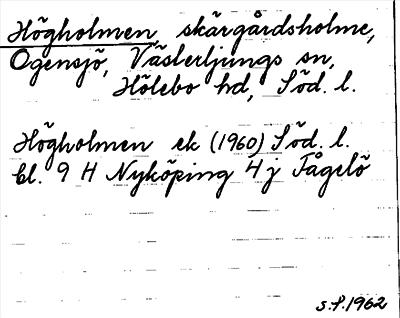 Högholmen, skärgårdsholme,
Ogensjö, Västerljungs sn,
Hölebo hd, Söd. l.
Högholmen ek (1960) Söd. l.
bl. 9 H Nyköping 4 j Fågelö
s.f. 1962